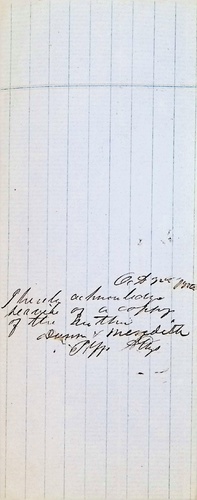 I hereby acknowledge
service of a copy
of the within
Dunn & Meredith
Plffs Attys